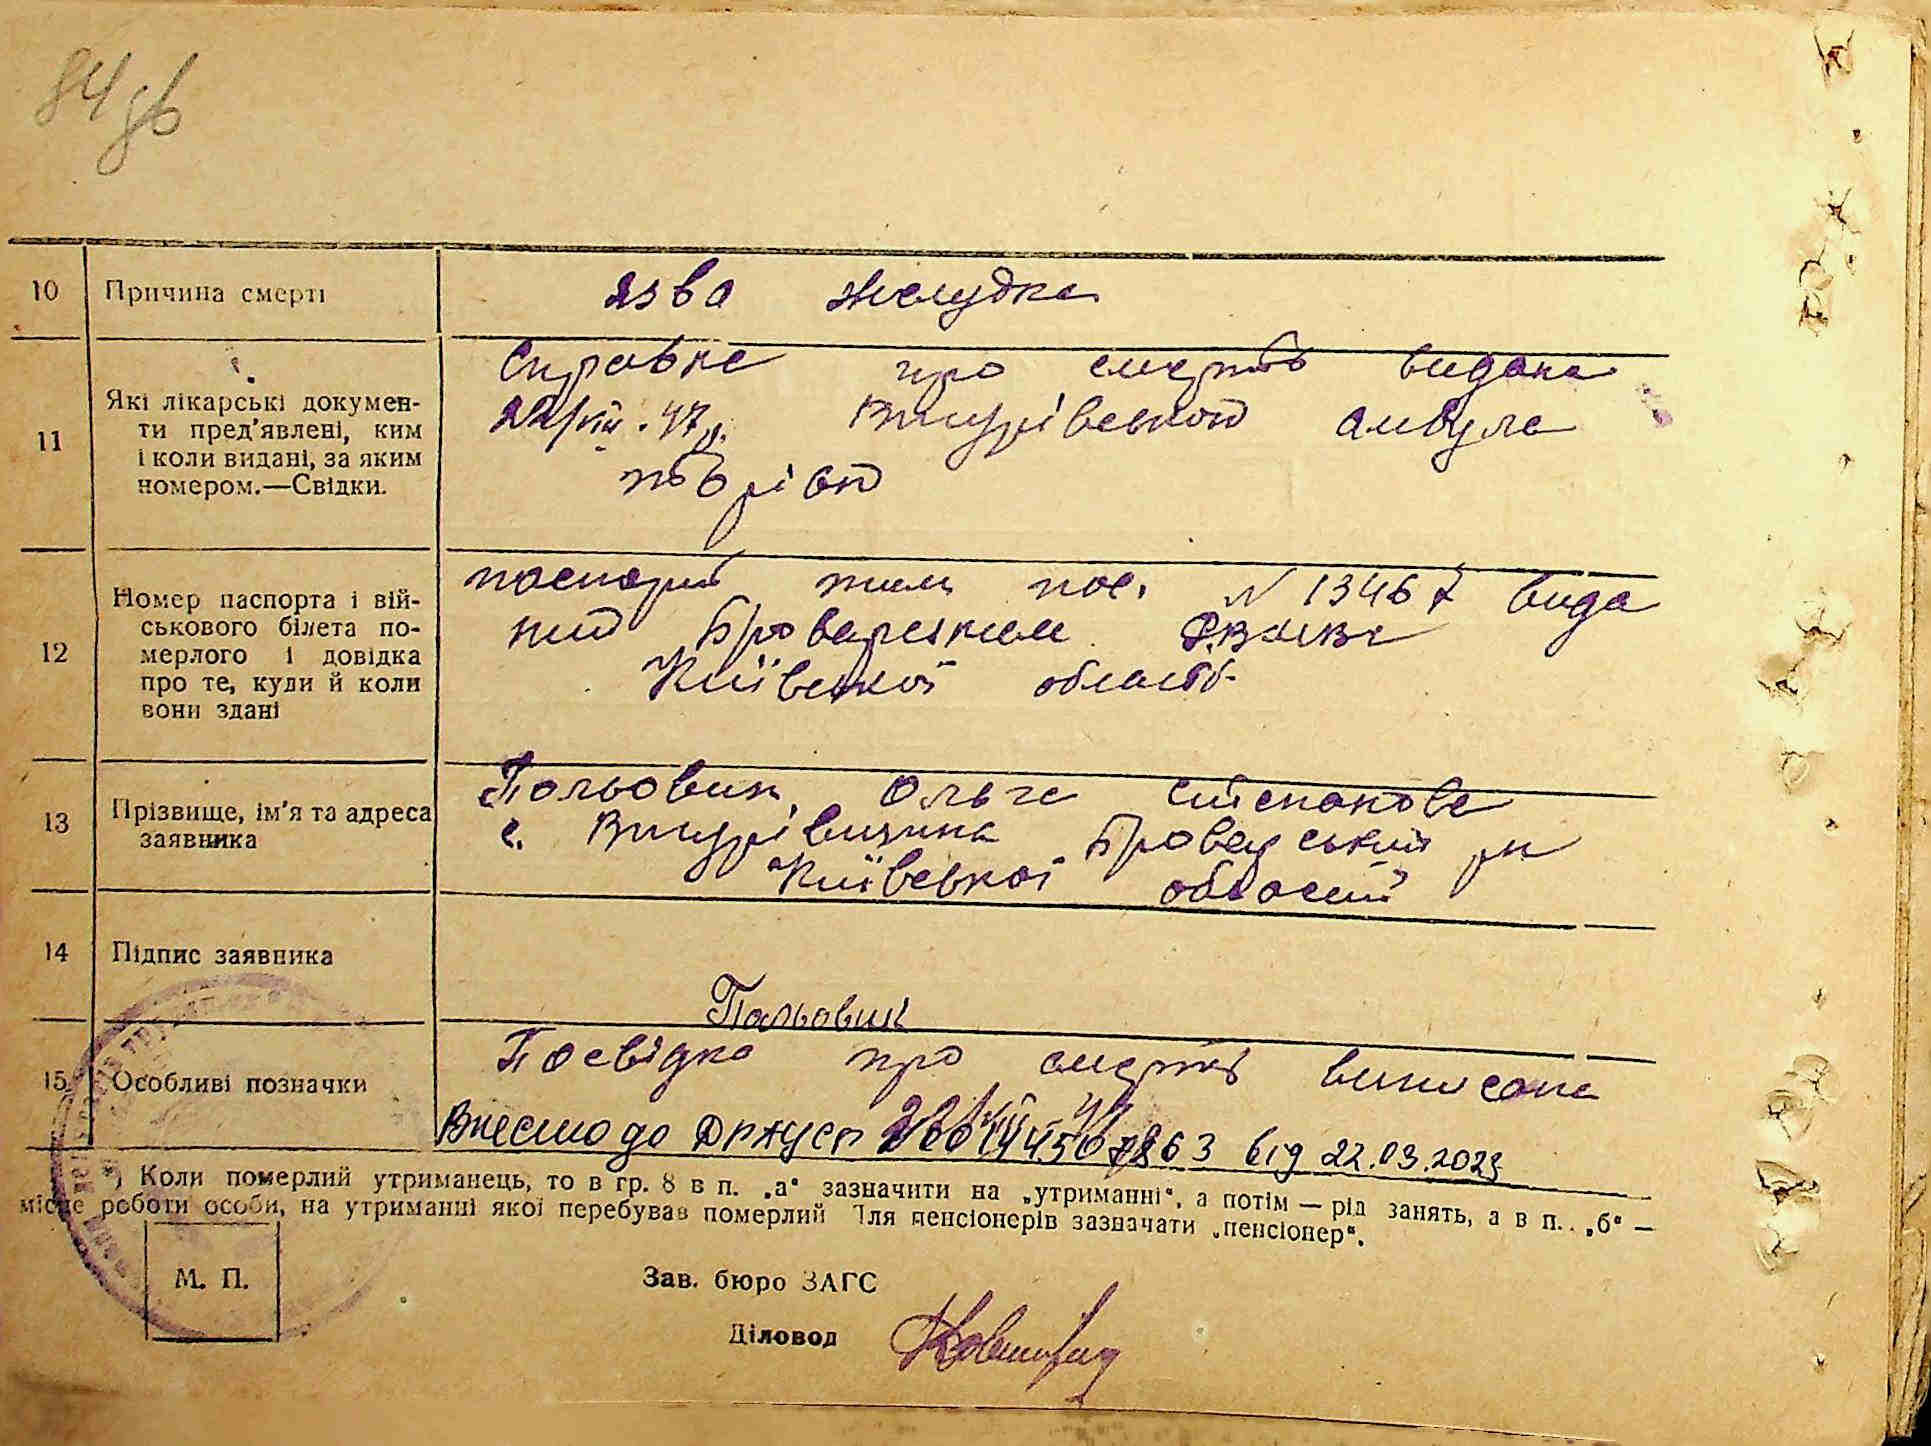 84 зв
10 Причина смерті язва желудка
11 Які лікарські докумен-
ти пред'явлені, ким
і коли видані, за яким
номером.—Свідки.
Справка про смерть видана
22/VIII. 47 р. амбула
торією
12 Номер паспорта і вій-
ськового білета по-
мерлого і довідка
про те, куди й коли
вони здані
паспорт пос. N 13467 вида
ний Броварским
Київської области
13 Прізвище, ім'я та адреса
заявника
Польовик Ольга Степанова
с. Броварський рн
Київської області
14 Підпис заявника
Польовик
15 Особливі позначки
Посвідка про смерть виписана
Внесено до від 22.03.2023
*) Коли померлий утриманець, то в гр. 8 в п. „а" зазначити на „утриманні", а потім — рід занять, а в п. „б" —
місце роботи особи, на утриманні якої перебував померлий Для пенсіонерів зазначати „пенсіонер".
М. П.
Зав. бюро ЗАГС
Діловод